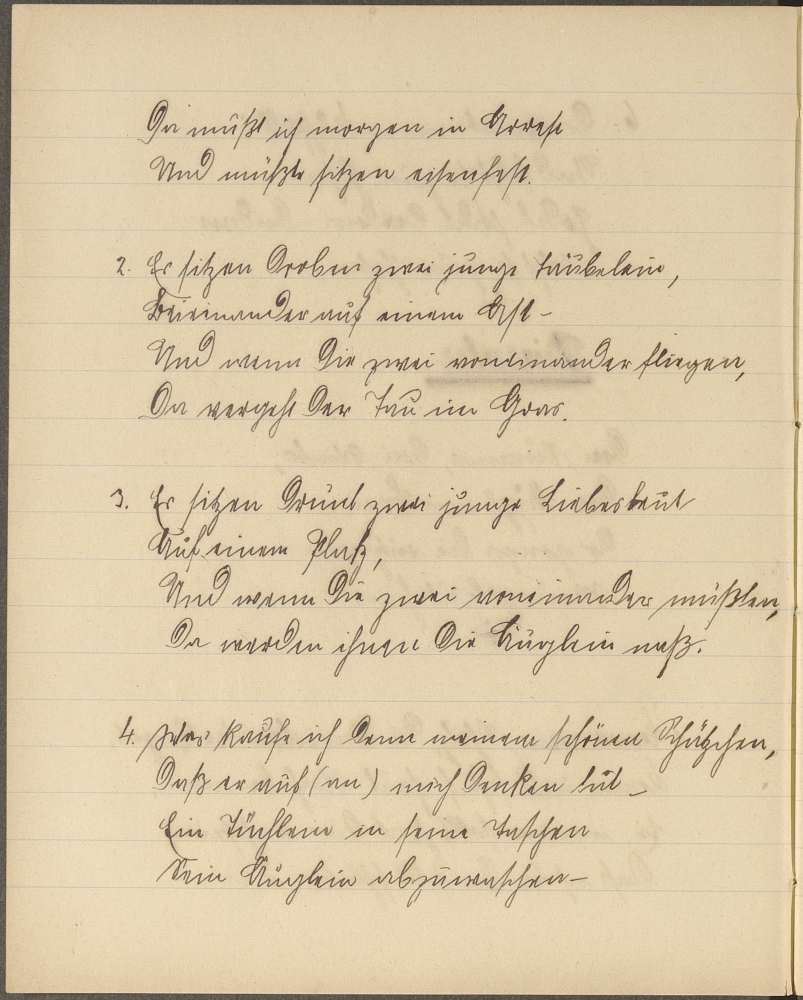 Da müßt ich morgen in Arrest
Und müßte sitzen eisenfest.
2. Es sitzen droben zwei junge Täubelein,
Beieinander auf einem Ast –
Und wenn die zwei voneinander fliegen,
Da vergeht der Tau im Gras.
3. Es sitzen drünt zwei junge Liebesleut
Auf einem Platz,
Und wenn die zwei voneinander müßten,
Da werden ihnen die Äuglein naß.
4. Was kaufe ich denn meinem schönen Schätzchen,
Daß er auf (an) mich denken tut –
Ein Tüchlein in seine Taschen
Sein Äuglein abzuwaschen –